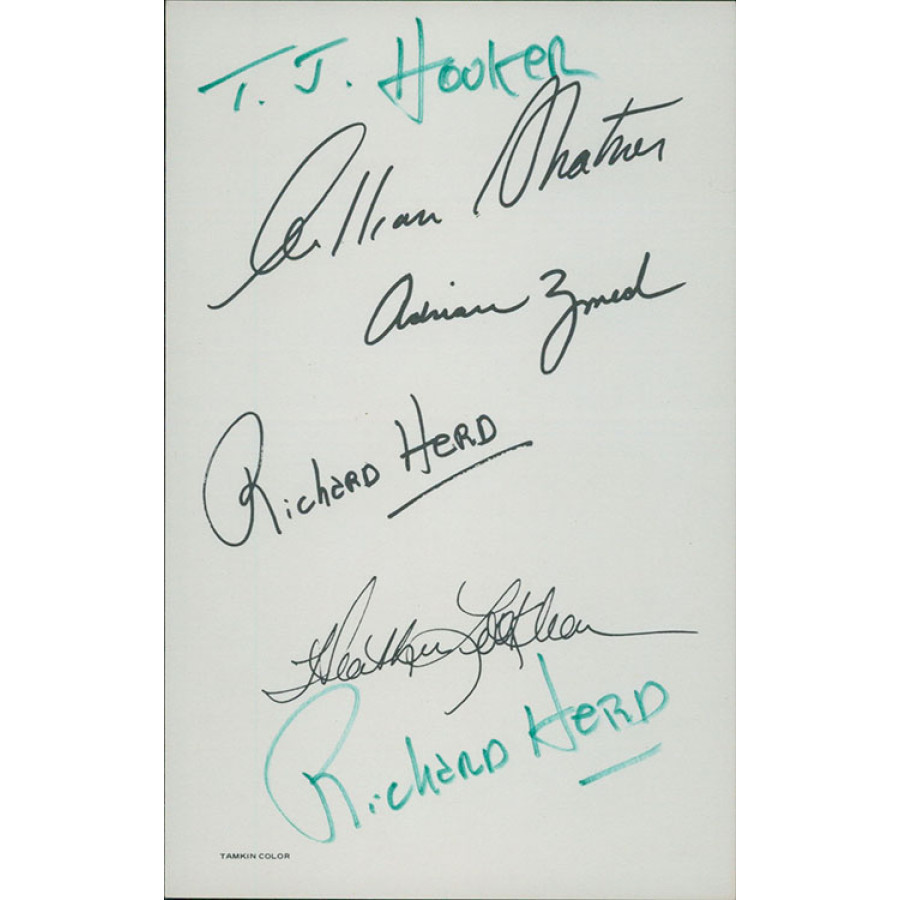 T. J. Hooker
William Shatner
Adrian Zmed
Richard Herd
Heather Locklear
Richard Herd
TAMKIN COLOR